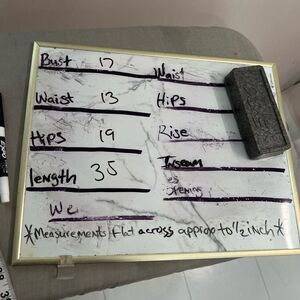 Bust 17
Waist 13
Hips 19
length 35
We
Waist
Hips
Rise
Inseam
Leg
opening
*Measurements flat across approp to 1/2 inch*